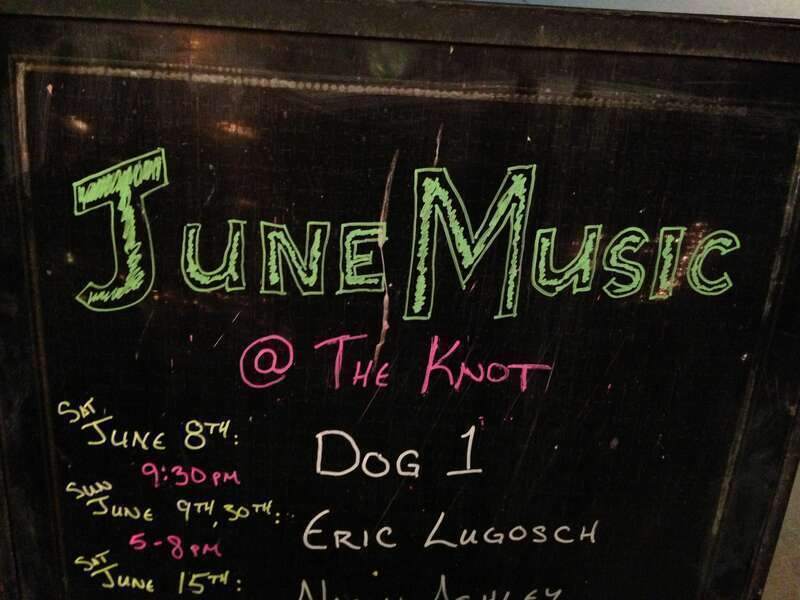 June Music
@ The Knot
Sat June 8th: Dog 1
9:30 PM
Sun June 9th, 30th: Eric Lugosch
5-8 PM
Sat June 15th: Ashley